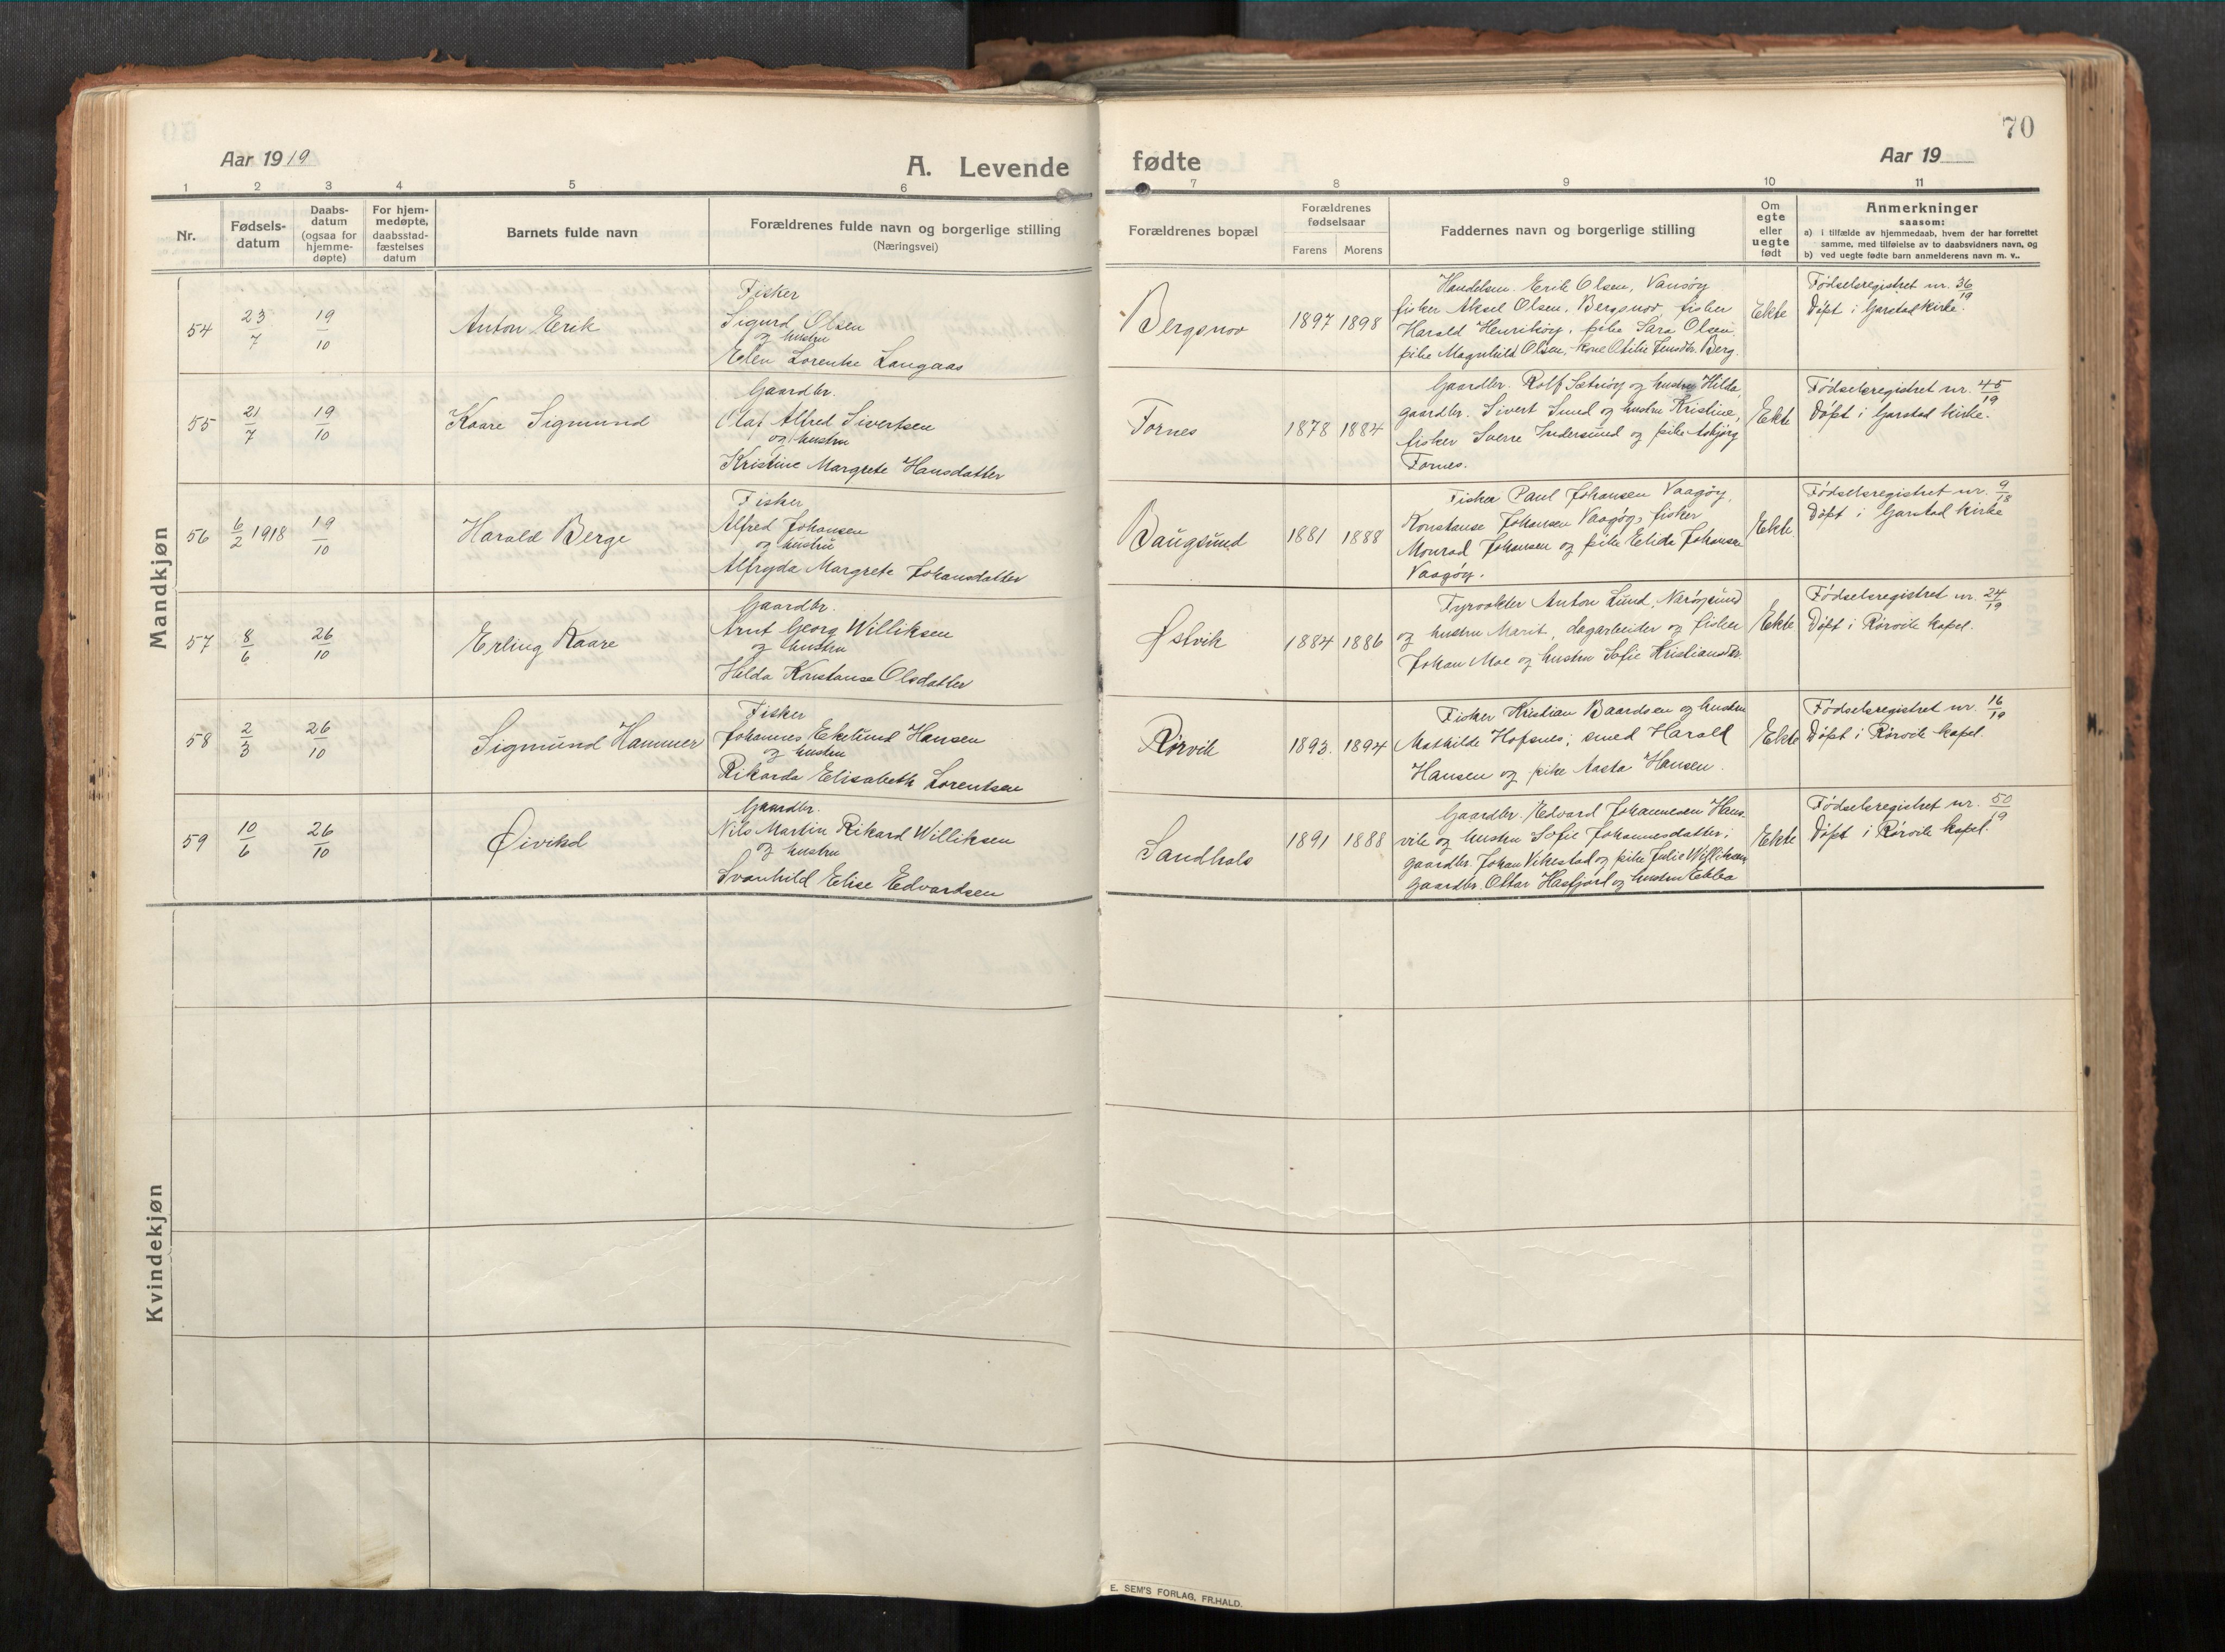 70
Aar 1919
A. Levende
fødte
Aar 19
1 2 3 4 5 6
7 8 9 10 11
Nr.
Fødsels-
datum
Daabs-
datum
(ogsaa for
hjemme-
døpte)
For hjem-
medøpte,
daabsstad-
fæstelses
datum
Barnets fulde navn
Forældrenes fulde navn og borgerlige stilling
(Næringsvei)
Forældrenes bopæl
Forældrenes
fødselsaar
Farens Morens
Faddernes navn og borgerlige stilling
Om
egte
eller
uegte
født
Anmerkninger
saasom:
a) i tilfælde av hjemmedaab, hvem der har forrettet
samme, med tilføielse av to daabsvidners navn, og
b) ved uegte fødte barn anmelderens navn m. v..
Mandkjøn
54
23/7
19/10
Anton Erik
Fisker
Sigurd Olsen
og hustru
Elen Lorentse Langaas
Bergsnov
1897 1898
Handelsm. Erik Olsen, Vansøy
fisker Aksel Olsen, Bergsnov, fisker
Harald Henriksøy, pike Sara Olsen
pike Magnhild Olsen, kone Otilie Jensdtr. Berg.
Ekte
Fødselsregistret nr. 36/19
Døpt i Garstad kirke.
55
21/7
19/10
Kaare Sigmund
Gaardbr.
Olaf Alfred Sivertsen
og hustru
Kristine Margrete Hansdatter
Fornes
1878 1884
Gaardbr. Rolf Sætrøy og hustru Hilda,
gaardbr. Sivert Sund og hustru Kristine,
fisker Sverre Indersund og pike Asbjørg
Fornes.
Ekte
Fødselsregistret nr. 45/19
Døpt i Garstad kirke.
56
6/2 1918
19/10
Harald Berge
Fisker
Alfred Johansen
og hustru
Alfryda Margrete Johansdatter
Baugsund
1881 1888
Fisker Paul Johansen Vaagøy,
Konstanse Johansen Vaagøy, fisker
Monrad Johansen og pike Elida Johansen
Vaagøy.
Ekte.
Fødselsregistret nr. 9/18
Døpt i Garstad kirke
57
8/6
26/10
Erling Kaare
Gaardbr.
Arnt Georg Williksen
og hustru
Hilda Konstanse Olsdatter
Østvik
1884 1886
Fyrvokter Anton Lund, Nærøysund
og hustru Marit, dagarbeider og fisker
Johan Moe og hustru Sofie Kristiansdtr.
Ekte
Fødselsregistret nr. 24/19
Døpt i Rørvik kapel.
58
2/3
26/10
Sigmund Hammer
Fisker
Johannes Ekelund Hansen
og hustru
Rikarda Elisabeth Lorentsen
Rørvik
1893. 1894
Fisker Kristian Baardsen og hustru
Mathilde Hofsnes; smed Harald
Hansen og pike Aasta Hansen.
Ekte
Fødselsregistret nr. 16/19
Døpt i Rørvik kapel.
59
10/6
26/10
Øivikd
Gaardbr.
Nils Martin Rikard Williksen
og hustru
Svanhild Elise Edvardsen
Sandhals
1891 1888
Gaardbr. Edvard Johannesen Hans-
vik og hustru Sofie Johannesdatter;
gaardbr. Johan Vikestad og pike Julie Williksen
Gaardbr. Ottar Hasfjord og hustru Ebba
Ekte
Fødselsregistret nr. 50/19
Døpt i Rørvik kapel.
Kvindekjøn
E. SEM'S FORLAG, FR.HALD.